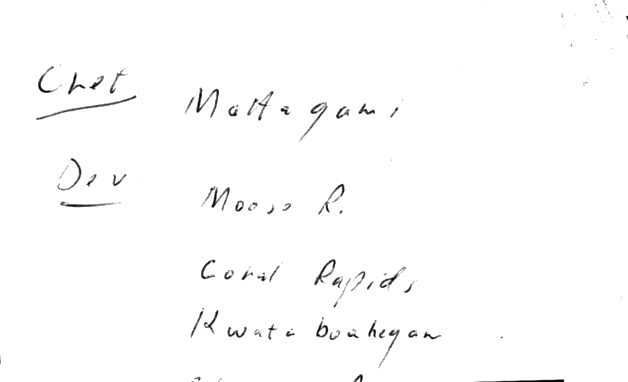 Cret Mattagami
Dev Moose R.
Coral Rapids
Kwataboahegan